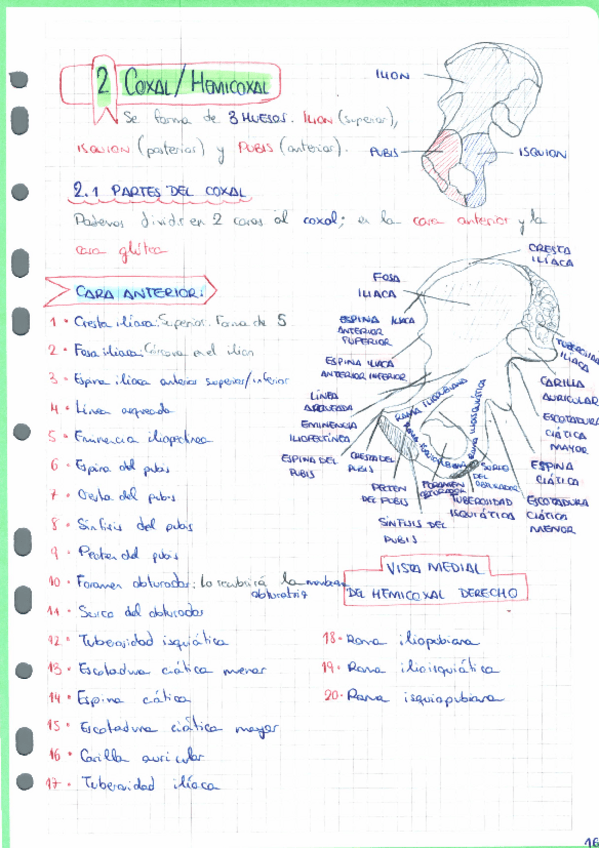 2 COXAL/HEMICOXAL
Se forma de 3 HUESOS. ILION (superior),
ISQUION (posterior) y PUBIS (anterior).
ILION
PUBIS
ISQUION
2.1 PARTES DEL COXAL
Podemos dividir en 2 caras al coxal; en la cara anterior y la
cara glútea
CARA ANTERIOR:
1 • Cresta ilíaca: Superior. Forma de S
2 • Fosa iliaca: Cóncava en el ilion
3 • Espina iliaca anterior superior/inferior
4 • Línea arqueada
5 • Eminencia iliopectínea
6 • Espina del pubis
7 • Cresta del pubis
8 • Sínfisis del pubis
9 • Pecten del pubis
10 • Foramen obturador: Lo recubrirá la membrana
obturatriz
11 • Surco del obturador
12 • Tuberosidad isquiática
13 • Escotadura ciática menor
14 • Espina ciática
15 • Escotadura ciática mayor
16 • Carilla auricular
17 • Tuberosidad ilíaca
18 • Rama iliopubiana
19 • Rama ilioisquiática
20 • Rama isquiopubiana
CRESTA
ILÍACA
FOSA
ILIACA
ESPINA ILIACA
ANTERIOR
SUPERIOR
ESPINA ILIACA
ANTERIOR INFERIOR
LÍNEA
ARQUEADA
EMINENCIA
ILIOPECTÍNEA
ESPINA DEL
PUBIS
CRESTA DEL
PUBIS
PECTEN
DEL PUBIS
SÍNFISIS DEL
PUBIS
FORAMEN
OBTURADOR
SURCO
DEL
OBTURADOR
TUBEROSIDAD
ISQUIÁTICA
RAMA ILIOPUBIANA
RAMA ISQUIOPUBIANA
RAMA ILIOISQUIÁTICA
TUBEROSIDAD
ILIACA
CARILLA
AURICULAR
ESCOTADURA
CIÁTICA
MAYOR
ESPINA
CIÁTICA
ESCOTADURA
CIÁTICA
MENOR
VISTA MEDIAL
DEL HEMICOXAL DERECHO
16